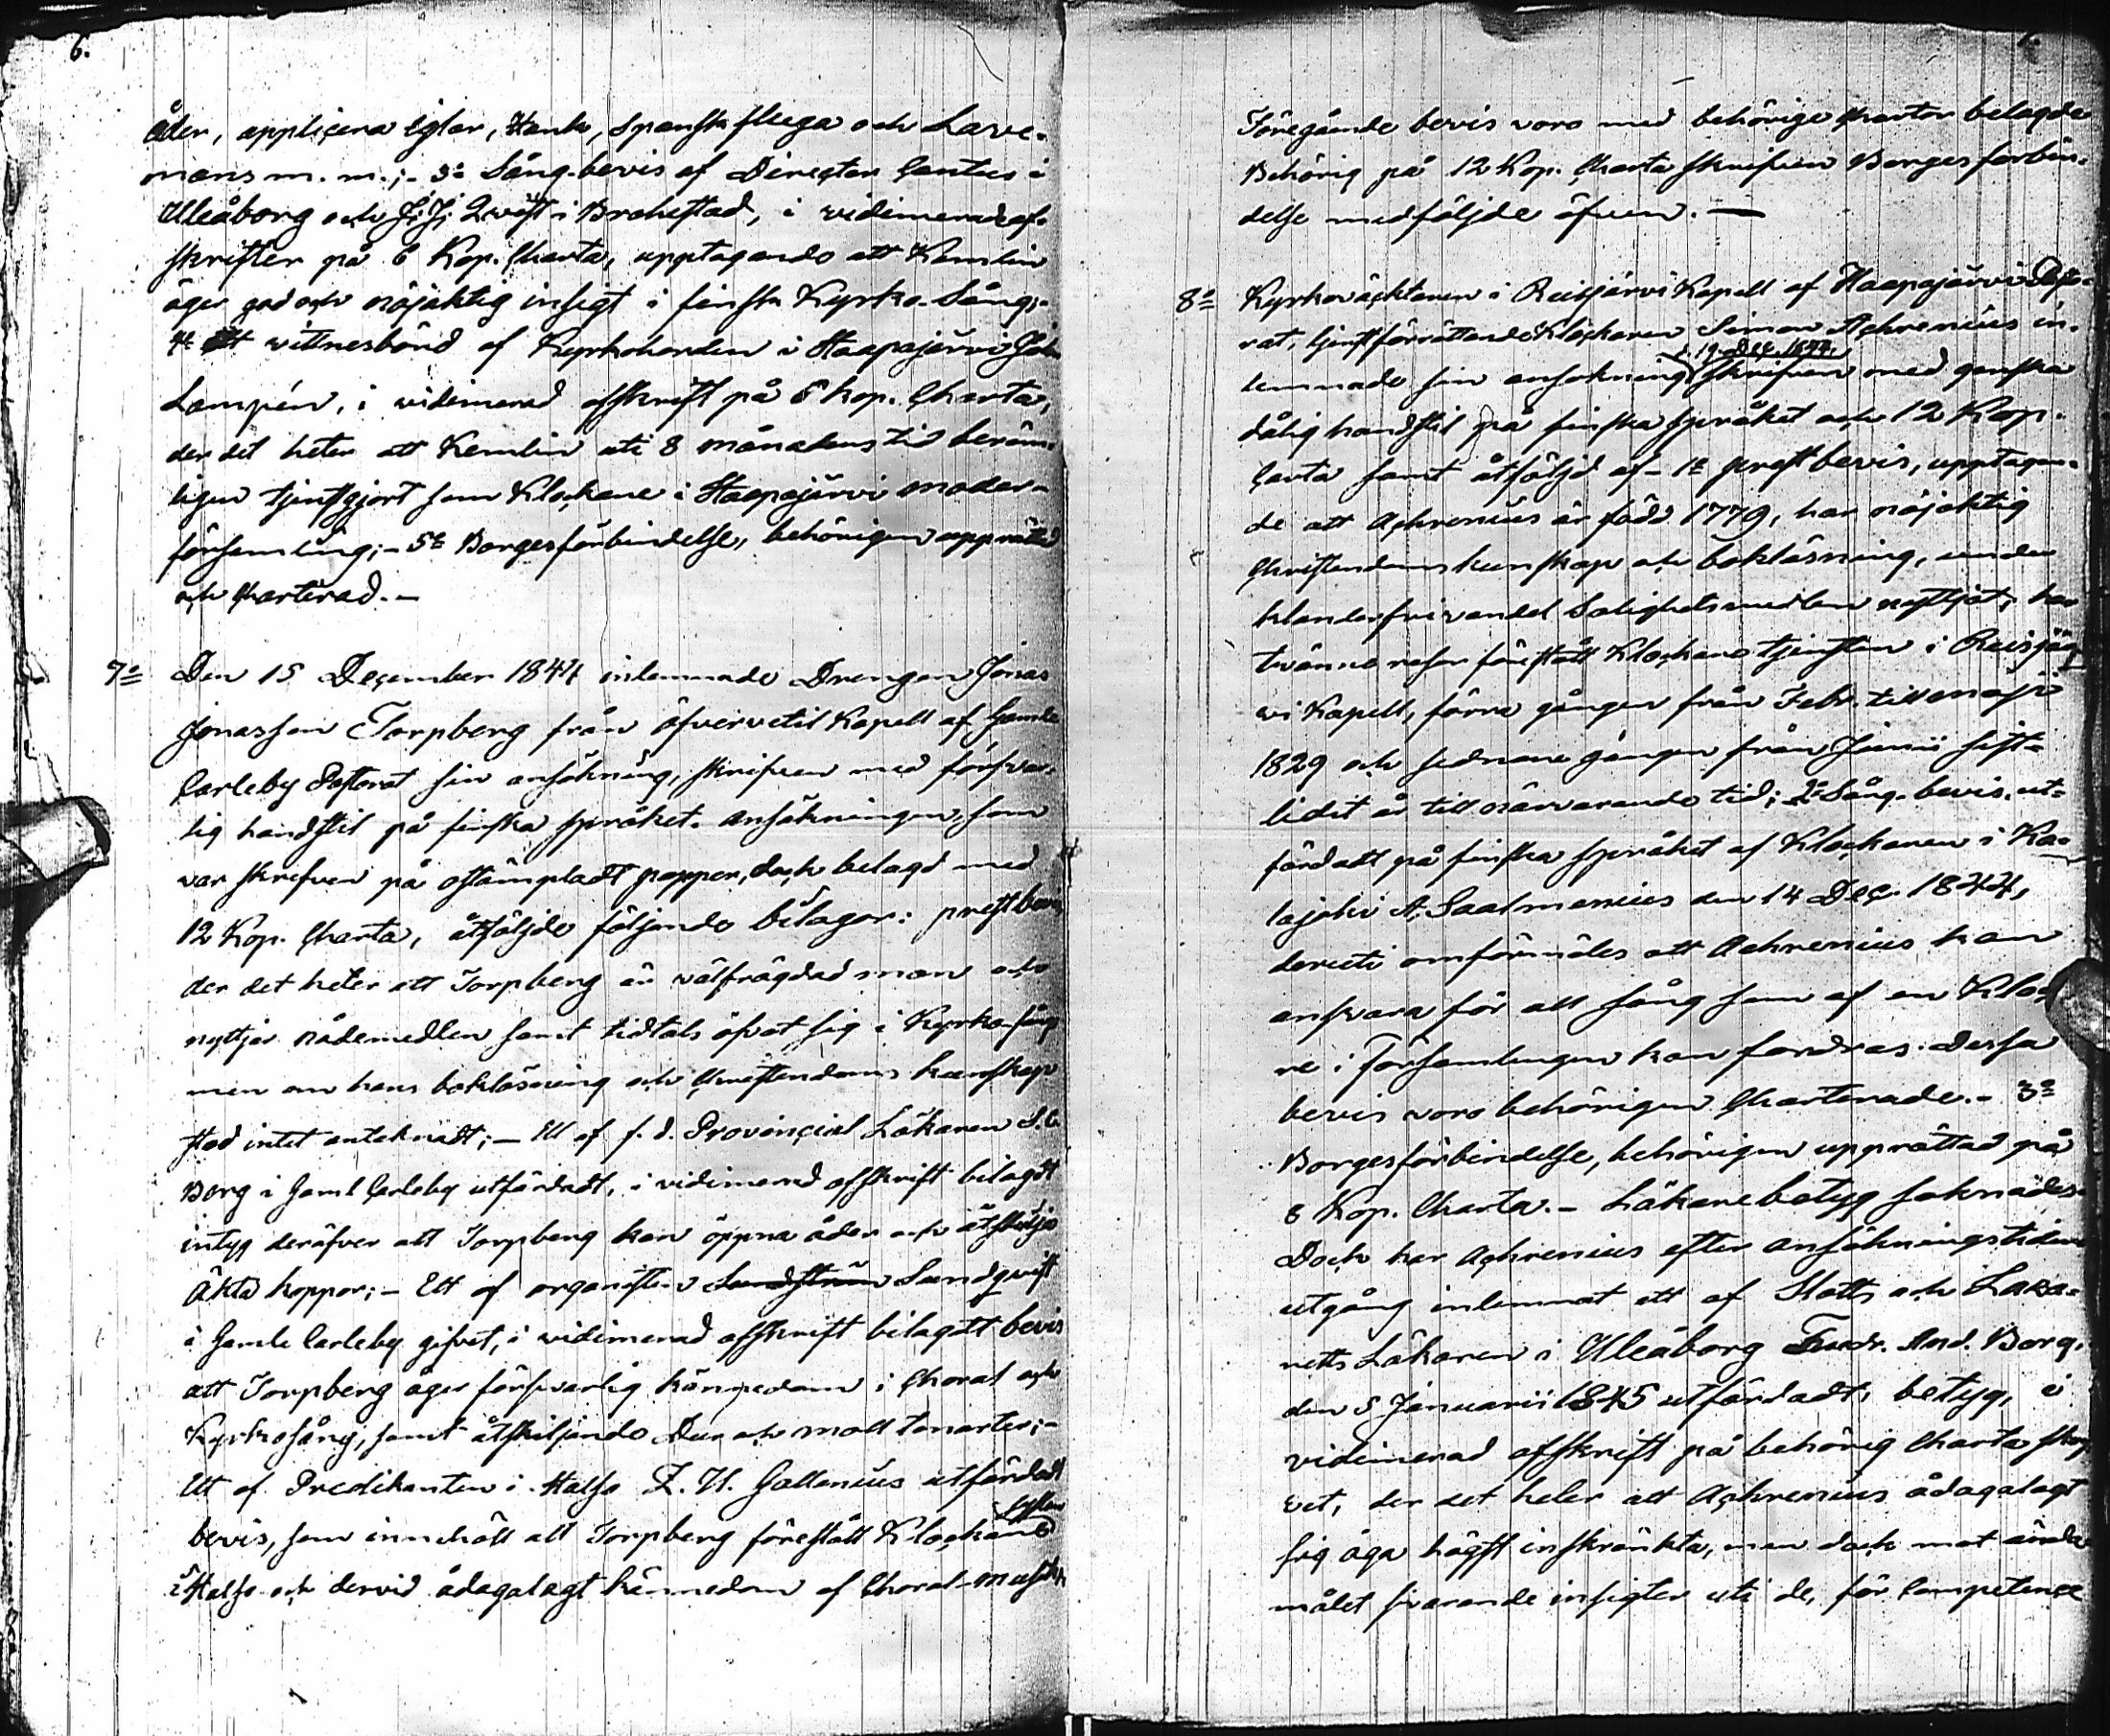 6.
åder, applicera iglar, Hank, spansk fluga och Lave-
mans m. m.; - 3o Sång-bevis af Directer Cantus i
Uleåborg och J. J. Qvist i Brahestad, i vidimerade af-
skrifter på 6 Kop. Charta, upptagande att Kemlin
äger god och nöjaktig insigt i finsk Kyrko-Sång; -
4o Ett vittnesbörd af Kyrkoherden i Haapajärvi Joh.
Lampén, i vidimerad afskrift på 6 kop. Charta,
der det heter att Kemlin uti 8 månaders tid beröm-
ligen tjenstgjort som Klockare i Haapajärvi moder-
församling; - 5o Borgesförbindelse, behörigen upprättad
och Charterad. -
7o Den 15 December 1844 inlemnade Drengen Jonas
Jonasson Torpberg från öfvervetil Kapell af Gamle
Carleby Pastorat sin ansökning, skrifven med försvar-
lig handstil på finska språket. Ansökningen, som
var skrefven på ostämpladt papper, dock belagd med
12 Kop. Charta, åtföljde följande bilagor: prestbevis
der det heter att Torpberg är välfrägdad man och
nyttjar nådemedlen samt tidtals öfvat sig i Kyrko-sång
men om hans bokläsning och Christendoms kunskap
stod intet antecknadt; - Ett af f. d. Provincial Läkaren S. C.
Borg i Gaml Carleby utfärdadt, i vidimerad afskrift bilagdt
intyg deröfver att Torpberg kan öppna åder och åtskilja
Äkta koppor; - Ett af organisten Sundström Sundqvist
i Gamle Carleby gifvet, i vidimerad afskrift bilagdt bevis
att Torpberg äger försvarlig kännedom i Choral och
Kyrkosång, samt åtskiljande Dur och moll tonarter; -
Ett af Predikanten i Halso Z. H. Gallenius utfärdadt
bevis, som innehöll att Torpberg förestått Klockare
i Halso och dervid ådagalagt kännedom af Choral-musik
7.
Föregående bevis voro med behörige chartor belagde
Behörig på 12 Kop. Charta skrifven Borges förbin-
delse medföljde äfven. -
8o Kyrkoväktaren i Reisjärvi Kapell af Haapajärvi Pasto-
rat, tjenstförrättande Klockaren Simon Achrenius in-
d. 19 Dec. 1844.
lemnade sin ansökning skrifven med ganska
dålig handstil på finska språket och 12 Kop.
Carta samt åtföljd af - 1o prestbevis, upptagan-
de att Achrenius är född 1779, har nöjaktig
Christendoms kunskap och bokläsning, under
klanderfri vandel Salighetsmedlen nyttjat, har
tvänne resor förestått Klockare tjensten i Reisjär-
vi Kapell, förra gången från Febr. till maji
1829 och sednare gången från Junii sist-
lidit år till närvarande tid; 2o Sång-bevis, ut-
färdadt på finska språket af Klockaren i Ka-
lajoki A. Saalmenius den 14 Dec. 1844,
deruti omförmäles att Achrenius kan
ansvara för all sång som af en Klocka-
re i församlingen kan fordras. Dessa
bevis voro behörigen Charterade. - 3o
Borgesförbindelse, behörigen upprättad på
8 Kop. Charta. - Läkarebetyg saknades.
Dock har Achrenius efter ansökningstiden
utgång inlemnat ett af Slotts och Laza-
retts Läkaren i Uleåborg Fredr. And. Borg,
den 5 Januarii 1845 utfärdadt, betyg, i
vidimerad afskrift på behörig Charta skref-
vet, der det heter att Achrenius ådagalagt
sig äga högst inskränkta, men dock mot ända-
målet svarande insigter uti de, för Competence